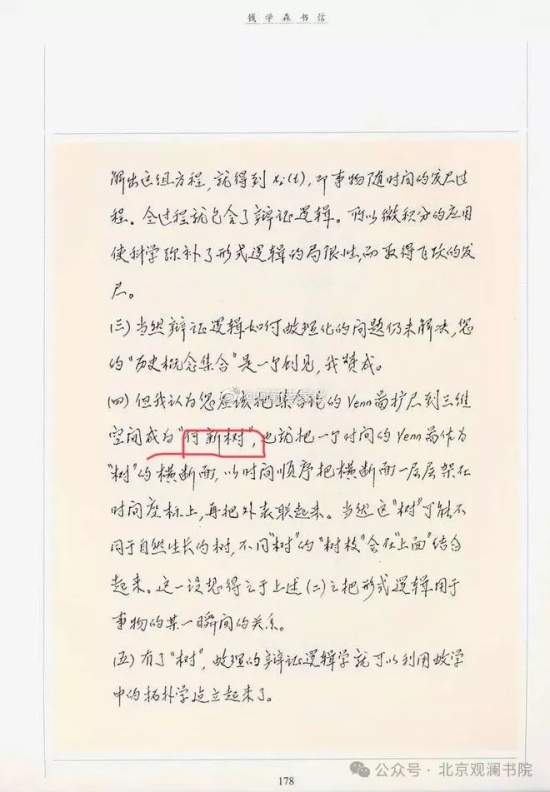 钱学森书信
解出这组方程，就得到 xᵢ(t)，即事物随时间的发展过
程。全过程就包含了辩证逻辑。所以微积分的应用
使科学弥补了形式逻辑的局限性，而取得飞跃的发
展。
(三)当然辩证逻辑如何数理化的问题仍未解决，您
的“历史概念集合”是一个创见，我赞成。
(四)但我认为您应该把集合论的Venn图扩展到三维
空间成为“何新树”，也就把一个时间的Venn图作为
“树”的横断面，以时间顺序把横断面一层层架在
时间座标上，再把外表联起来。当然这“树”可能不
同于自然生长的树，不同“树”的“树枝”会在“上面”结合
起来。这一设想得之于上述(二)之把形式逻辑用于
事物的某一瞬间的关系。
(五)有了“树”，数理的辩证逻辑学就可以利用数学
中的拓扑学建立起来了。
178
公众号·北京观澜书院